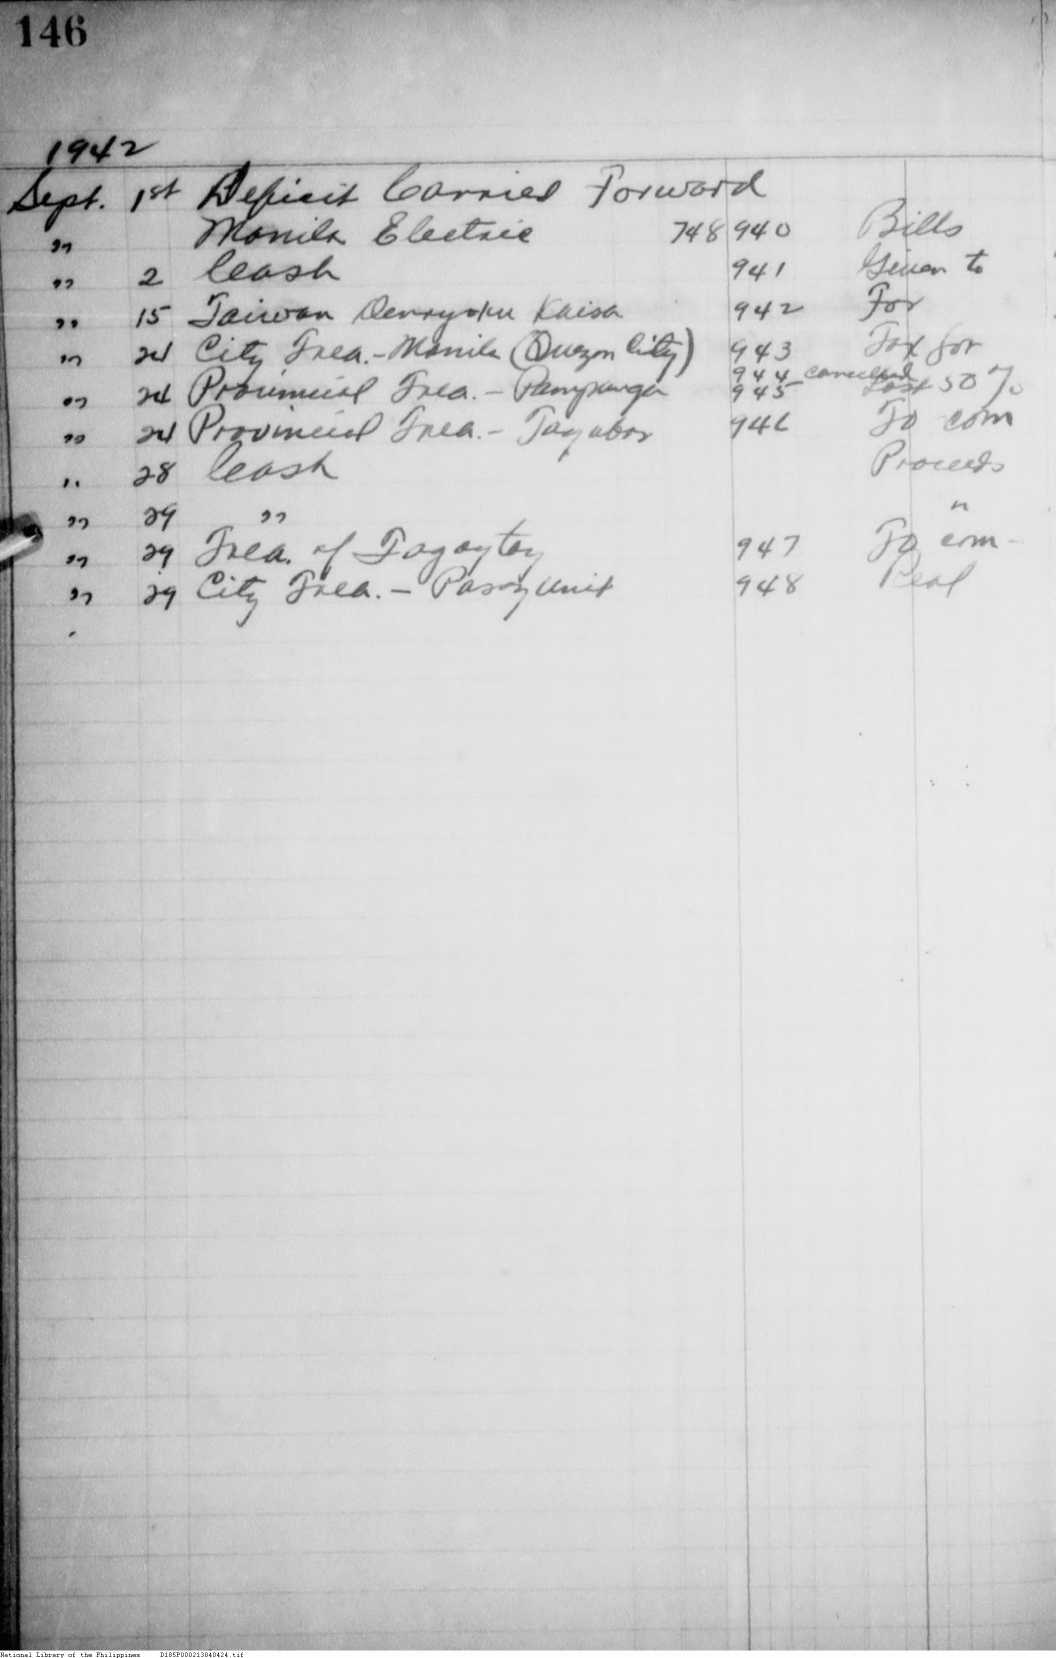 146
1942
Sept. 1st Deficit Carried Forward
" Manila Electric 748 940 Bills
" 2 Cash 941 Given to
" 15 Taiwan Denryoku Kaisa 942 For
" 24 City Trea. - Manila (Quezon City) 943 Tax for
944 cancelled
" 24 Provincial Trea. - Pampanga 945 Last 50%
" 24 Provincial Trea. - Tayabas 946 To com
" 28 Cash Proceeds
" 29 " "
" 29 Trea. of Tagaytay 947 To com-
" 29 City Trea. - Pasay Unit 948 Real
National Library of the Philippines D185P000213040424.tif